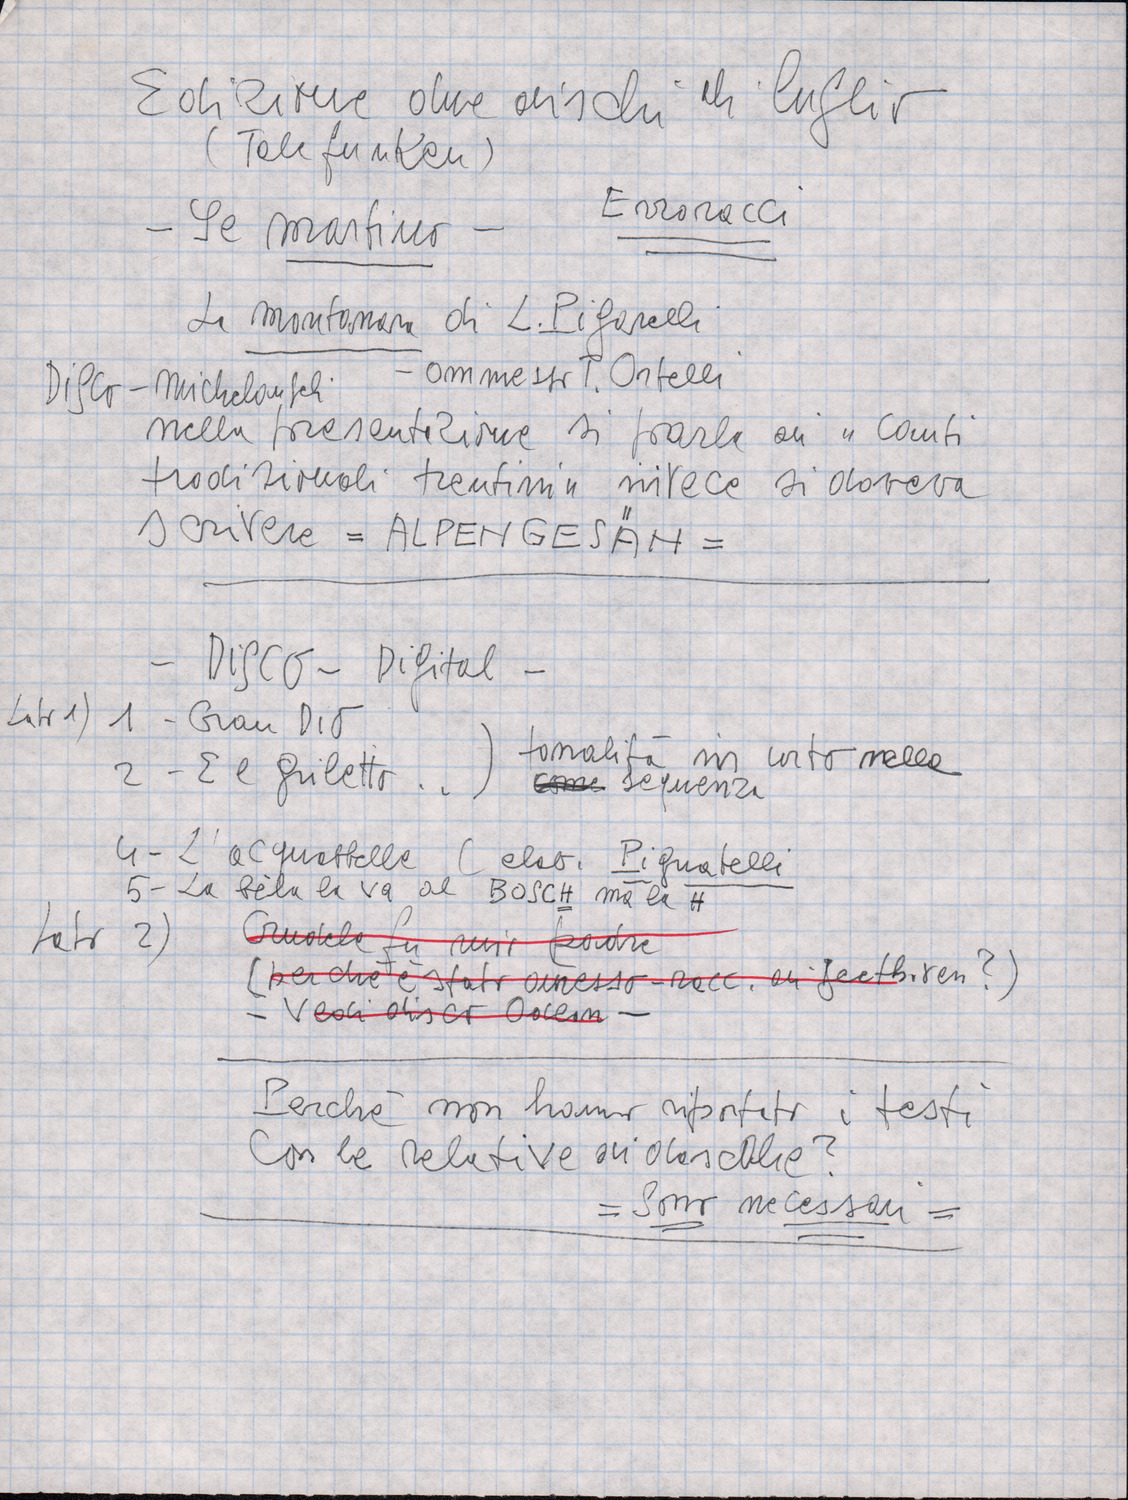 Edizione due dischi di luglio
(Telefunken)
- Se martino -
Erroracci
La montanara di L. Pigarelli
- ommesso T. Ortelli
Disco - Michelangeli
nella presentazione si parla di "Canti
tradizionali trentini" invece si doveva
scrivere = ALPENGESÄN =
- DISCO - Digital -
Lato 1) 1 - Gran Dio
2 - E el griletto .. ) tonalità in urto nella
come sequenza
4 - L'acquasbelle ( elab. Pignatelli
5 - La bèla la va al BOSCH ma la H
Lato 2) Crudele fu mio padre
(perchè è stato omesso - racc. di Geethoven?)
- Vedi disco Odeon -
Perchè non hanno riportato i testi
Con le relative didascalie?
= Sono necessari =